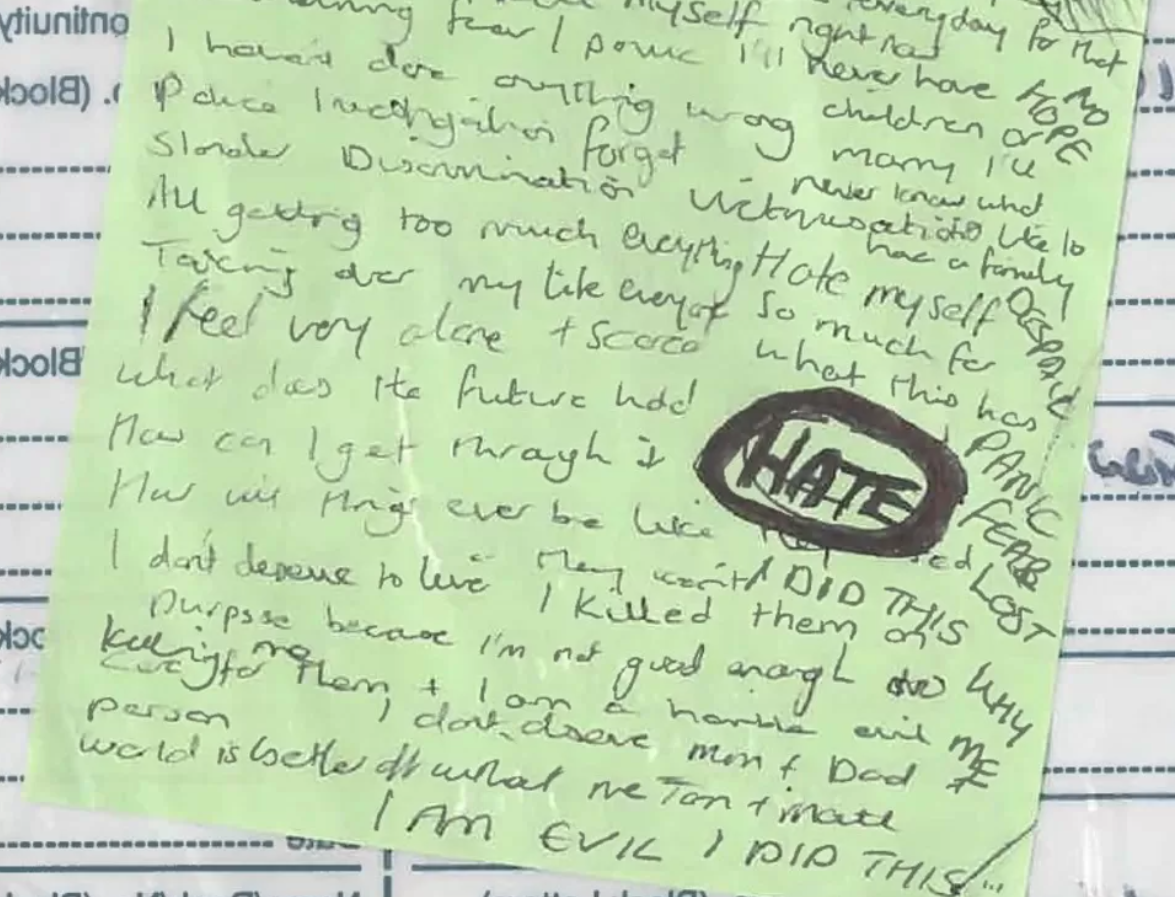 myself right now everyday for that
fear I panic I'll never have
I haven't done anything wrong children or
Police Investigation forget marry I'll
never know what
Slander Discrimination Victimisation its like to
have a family
All getting too much everything Hate myself
Taking over my life everyday so much for
I feel very alone + scared what this has
What does the future hold
How can I get through it
How will things ever be like they
I don't deserve to live They won't I DID THIS
I killed them on
purpose because I'm not good enough to
killing me
care for them + I am a horrible evil
person I don't deserve mum + Dad
world is better off without me Tom + Matt
I AM EVIL I DID THIS
NO
HOPE
DESPAIR
PANIC
FEAR
LOST
WHY
ME
HATE